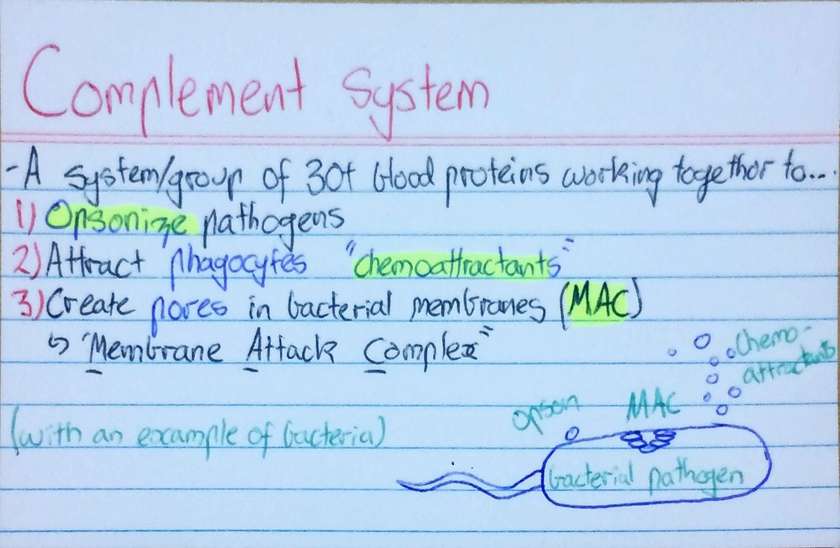 Complement System
-A system/group of 30+ blood proteins working together to...
1) Opsonize pathogens
2) Attract phagocytes "chemoattractants"
3) Create pores in bacterial membranes (MAC)
↳ "Membrane Attack Complex"
(with an example of bacteria)
opson
MAC
chemo-
attractants
bacterial pathogen